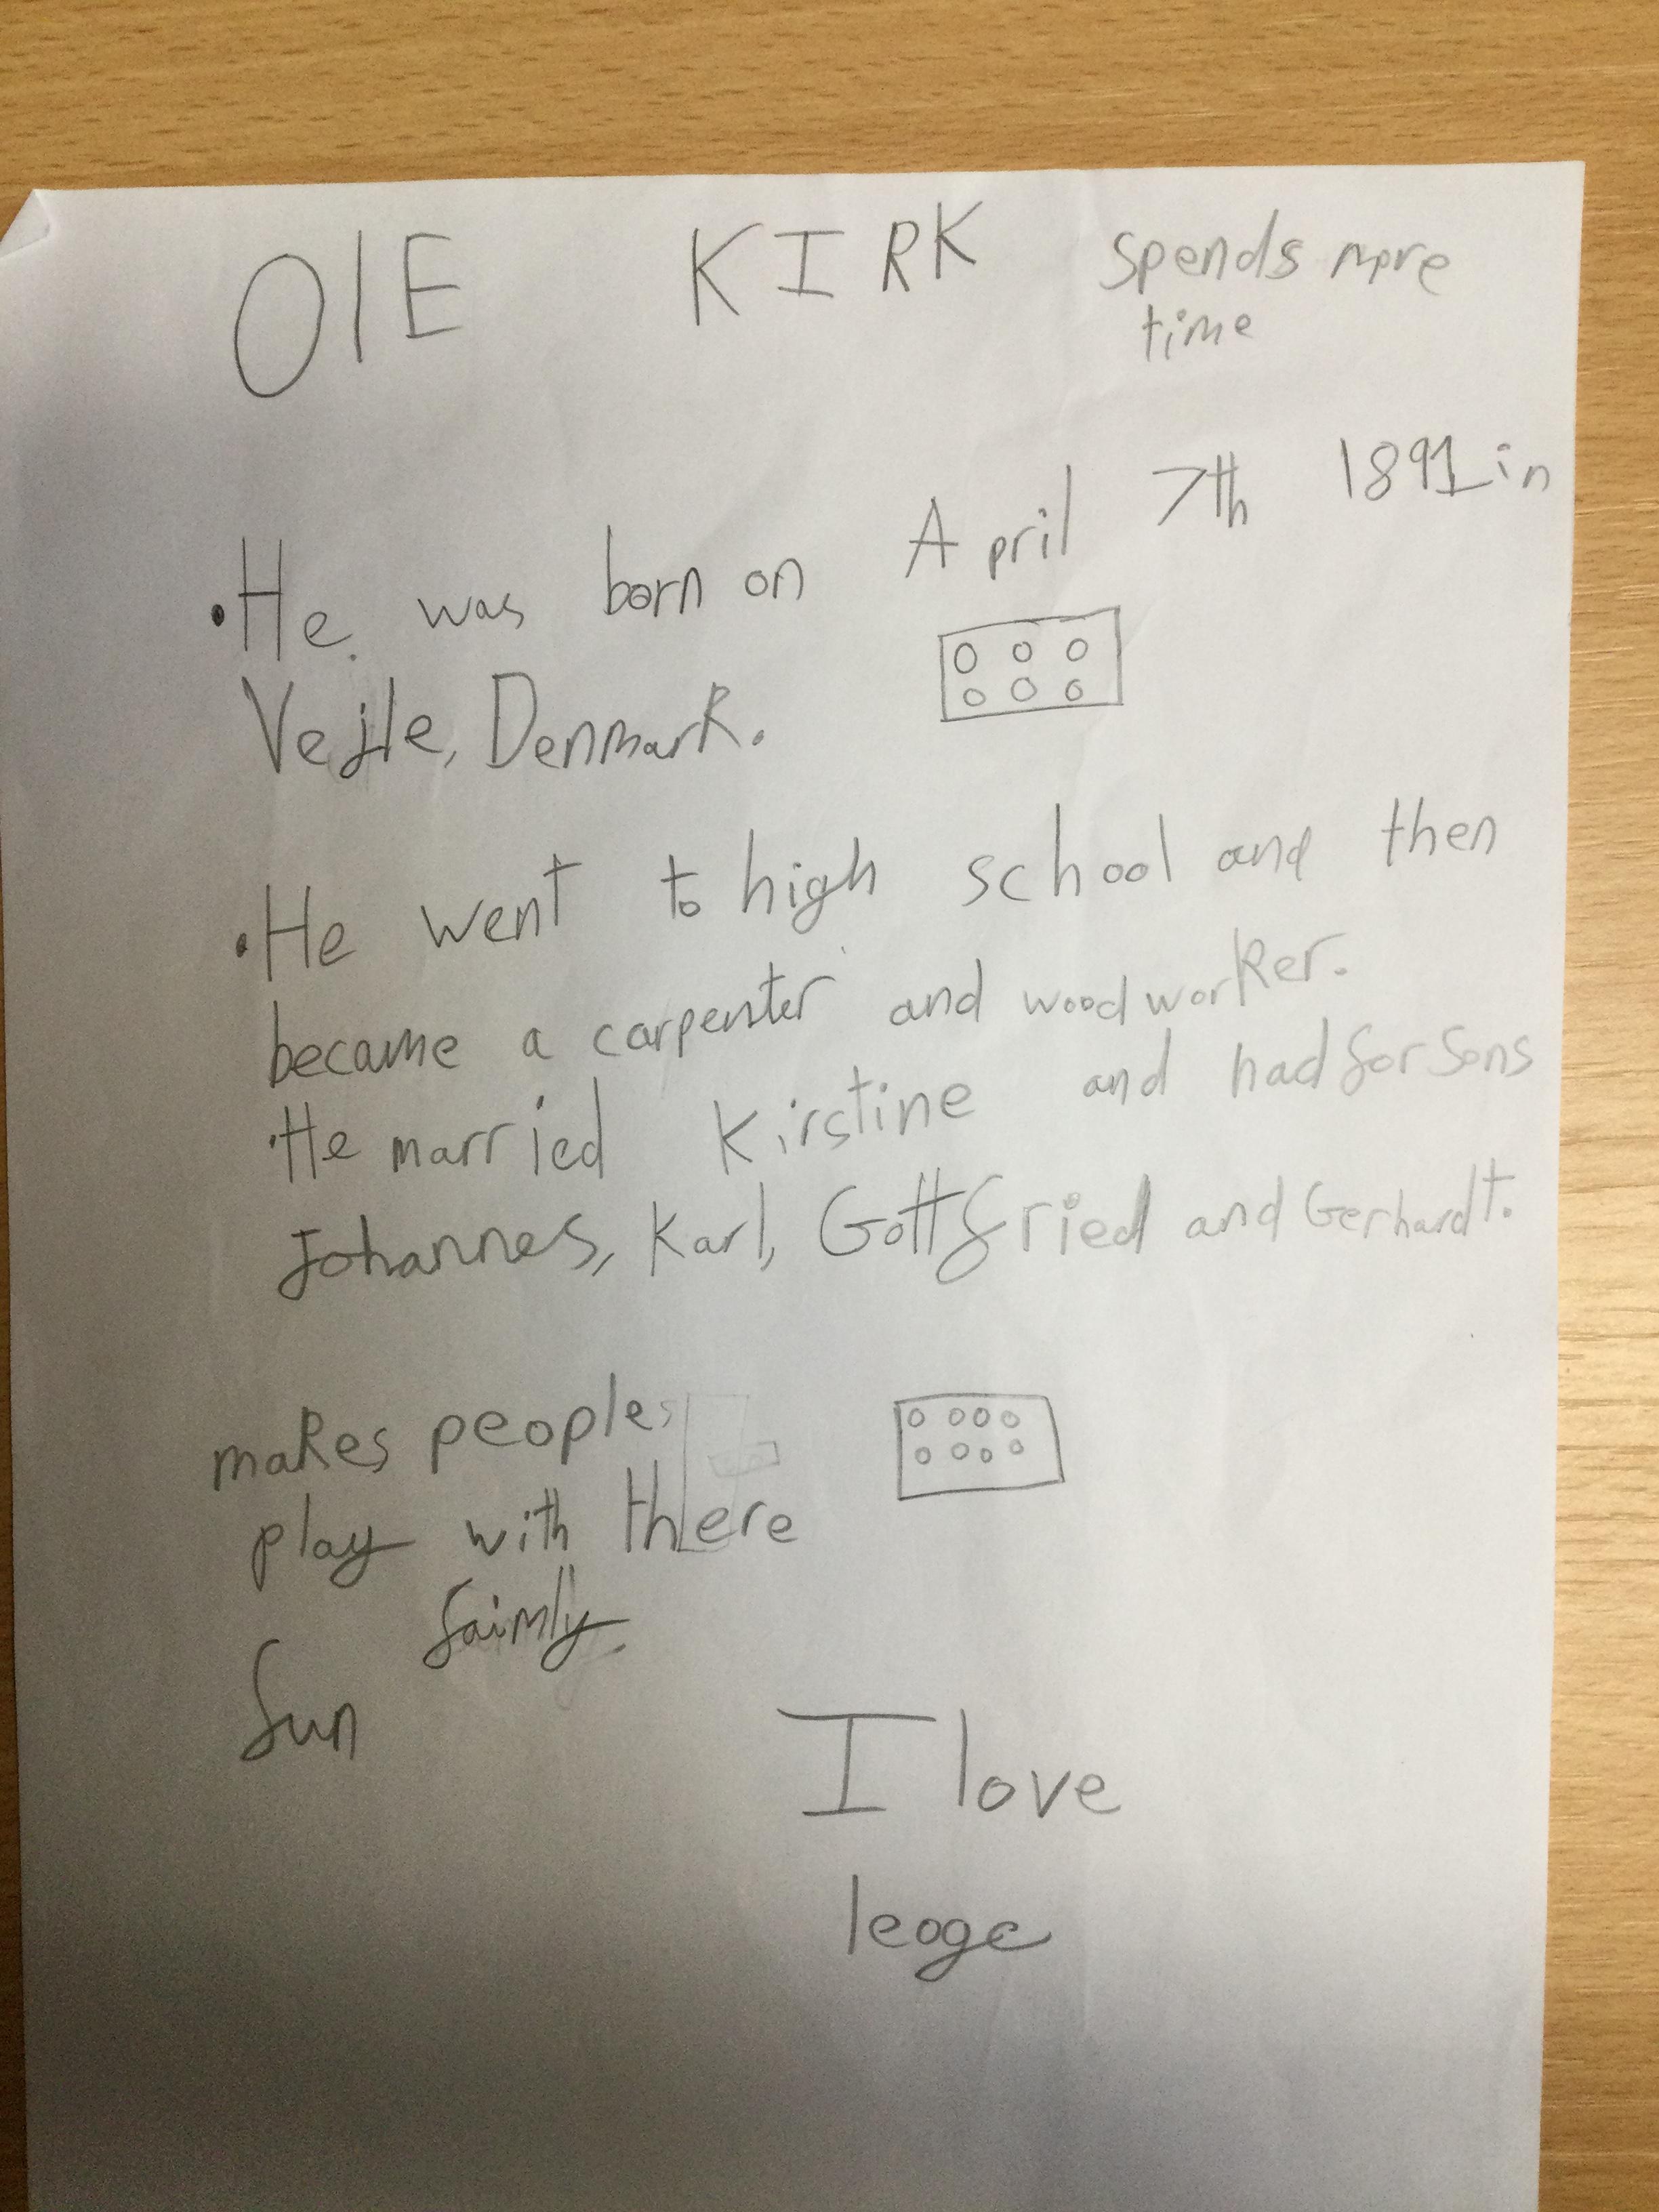 OlE KIRK spends more
time
•He was born on April 7th 1891 in
Vejle, Denmark.
•He went to high school and then
became a carpenter and woodworker.
•He married Kirstine and had for sons
Johannes, Karl, Gottfried and Gerhardt.
makes people
play with there
faimly.
fun
I love
leoge